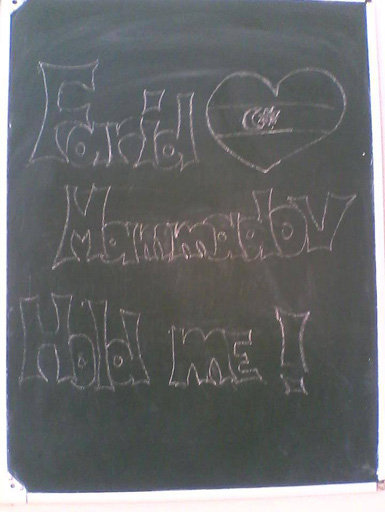 Farid
Mammadov
Hold me!